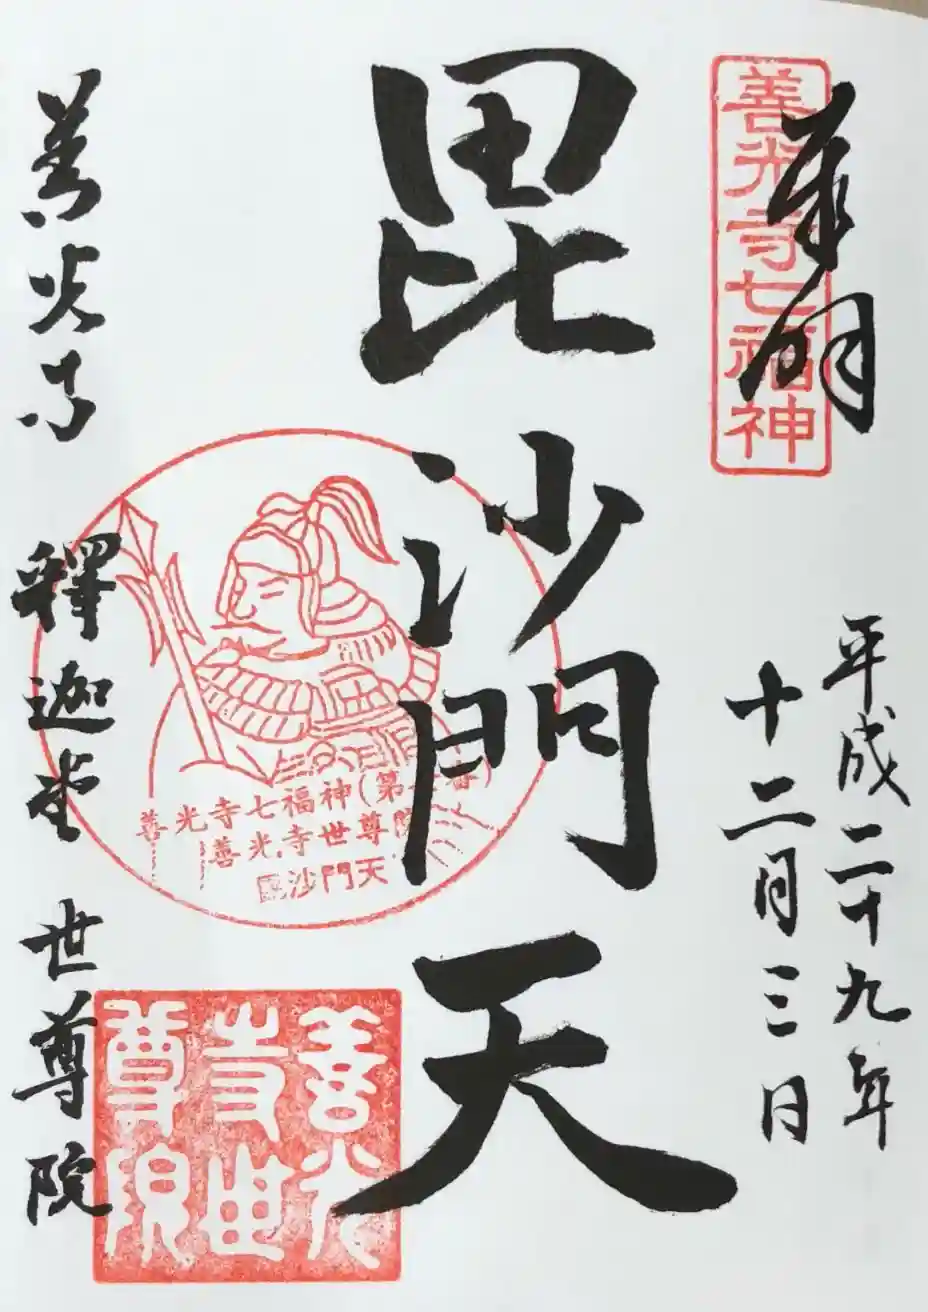 奉拝
善光寺七福神
平成二十九年
十二月三日
毘沙門天
善光寺七福神(第 番)
善光寺世尊院
毘沙門天
善光寺 釋迦堂 世尊院
善光
寺世
尊院